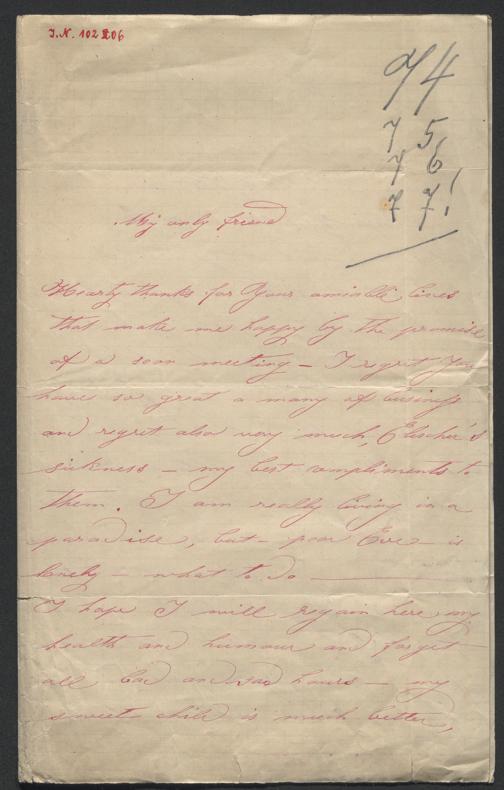 I.N. 102206
74
7 5
7 6
7 7!
My only friend
Hearty thanks for Your amiable lines
that make me happy by the promise
of a soon meeting – I regret You
have so great a many of business
and regret also very much, Elischer's
sickness – my best compliments to
them. I am really living in a
paradise, but – poor Eve – is
lonely – what to do –
I hope I will regain here my
health and humour and forget
all bad and sad hours – my
sweet child is much better,